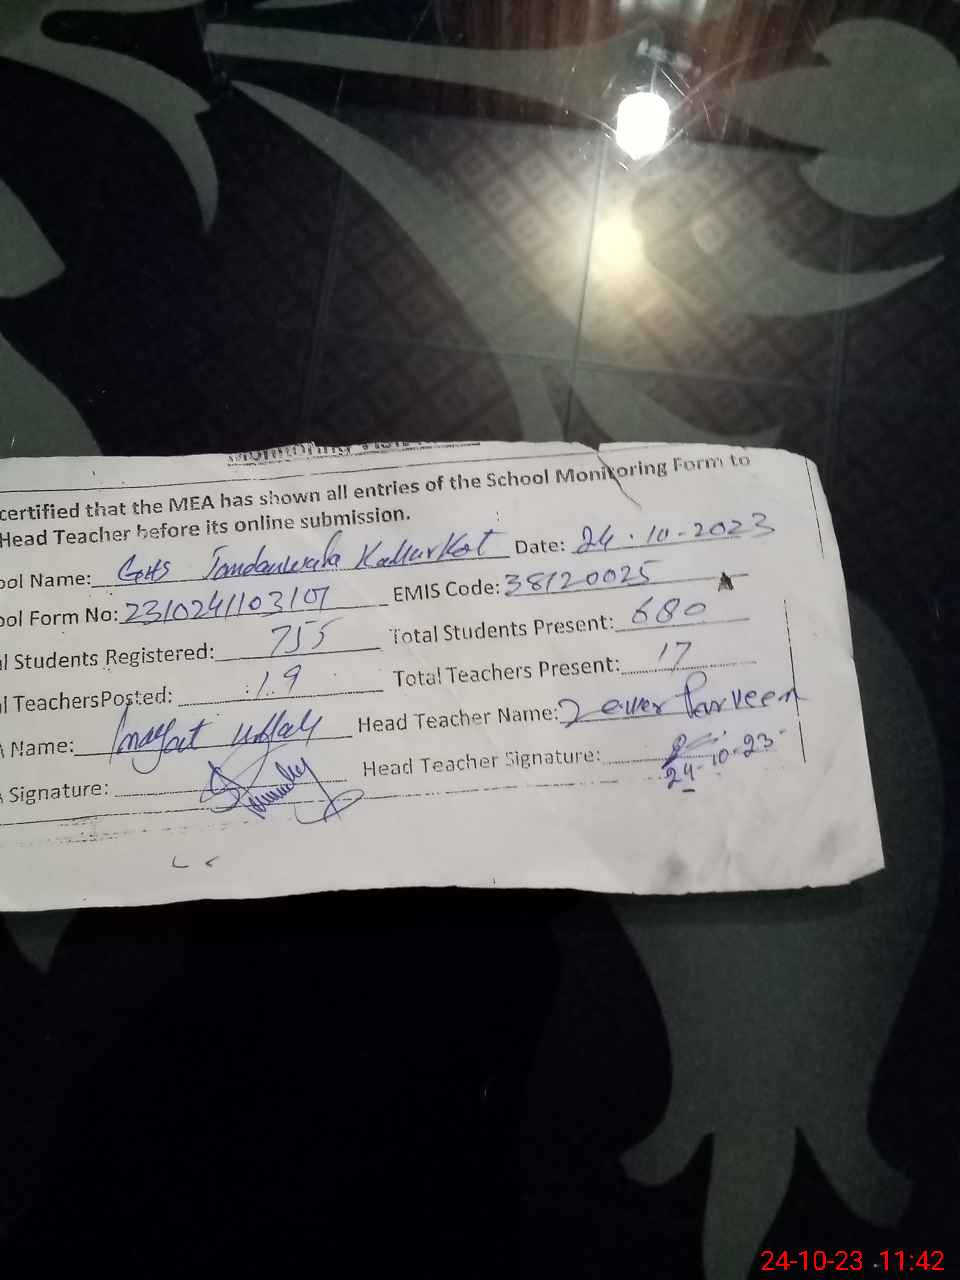 certified that the MEA has shown all entries of the School Monitoring Form to
Head Teacher before its online submission.
ool Name: GGHS Jandanwala KallurKot Date: 24.10-2023
ool Form No: 231024110310 EMIS Code: 38120025
l Students Registered: 755 Total Students Present: 680
l TeachersPosted: 19 Total Teachers Present: 17
Name: Head Teacher Name: Parveen
Signature: Head Teacher Signature:
24-10-23
24-10-23 11:42